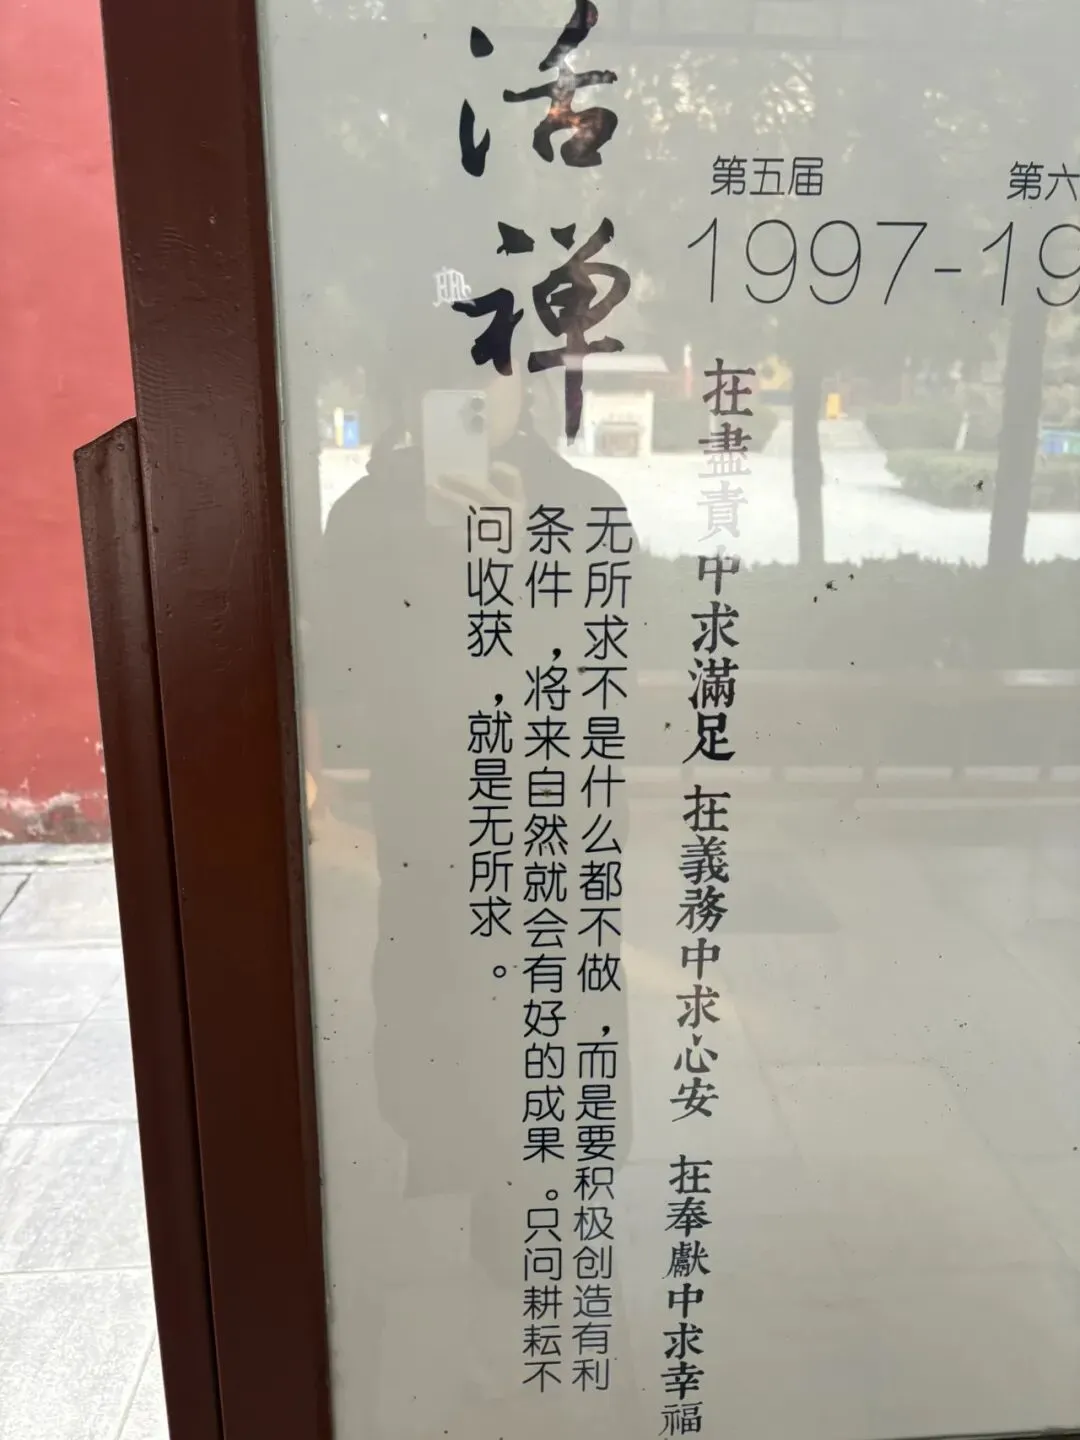 活禅
第五届
第六
1997-19
在盡責中求滿足 在義務中求心安 在奉獻中求幸福
无所求不是什么都不做，而是要积极创造有利
条件，将来自然就会有好的成果。只问耕耘不
问收获，就是无所求。